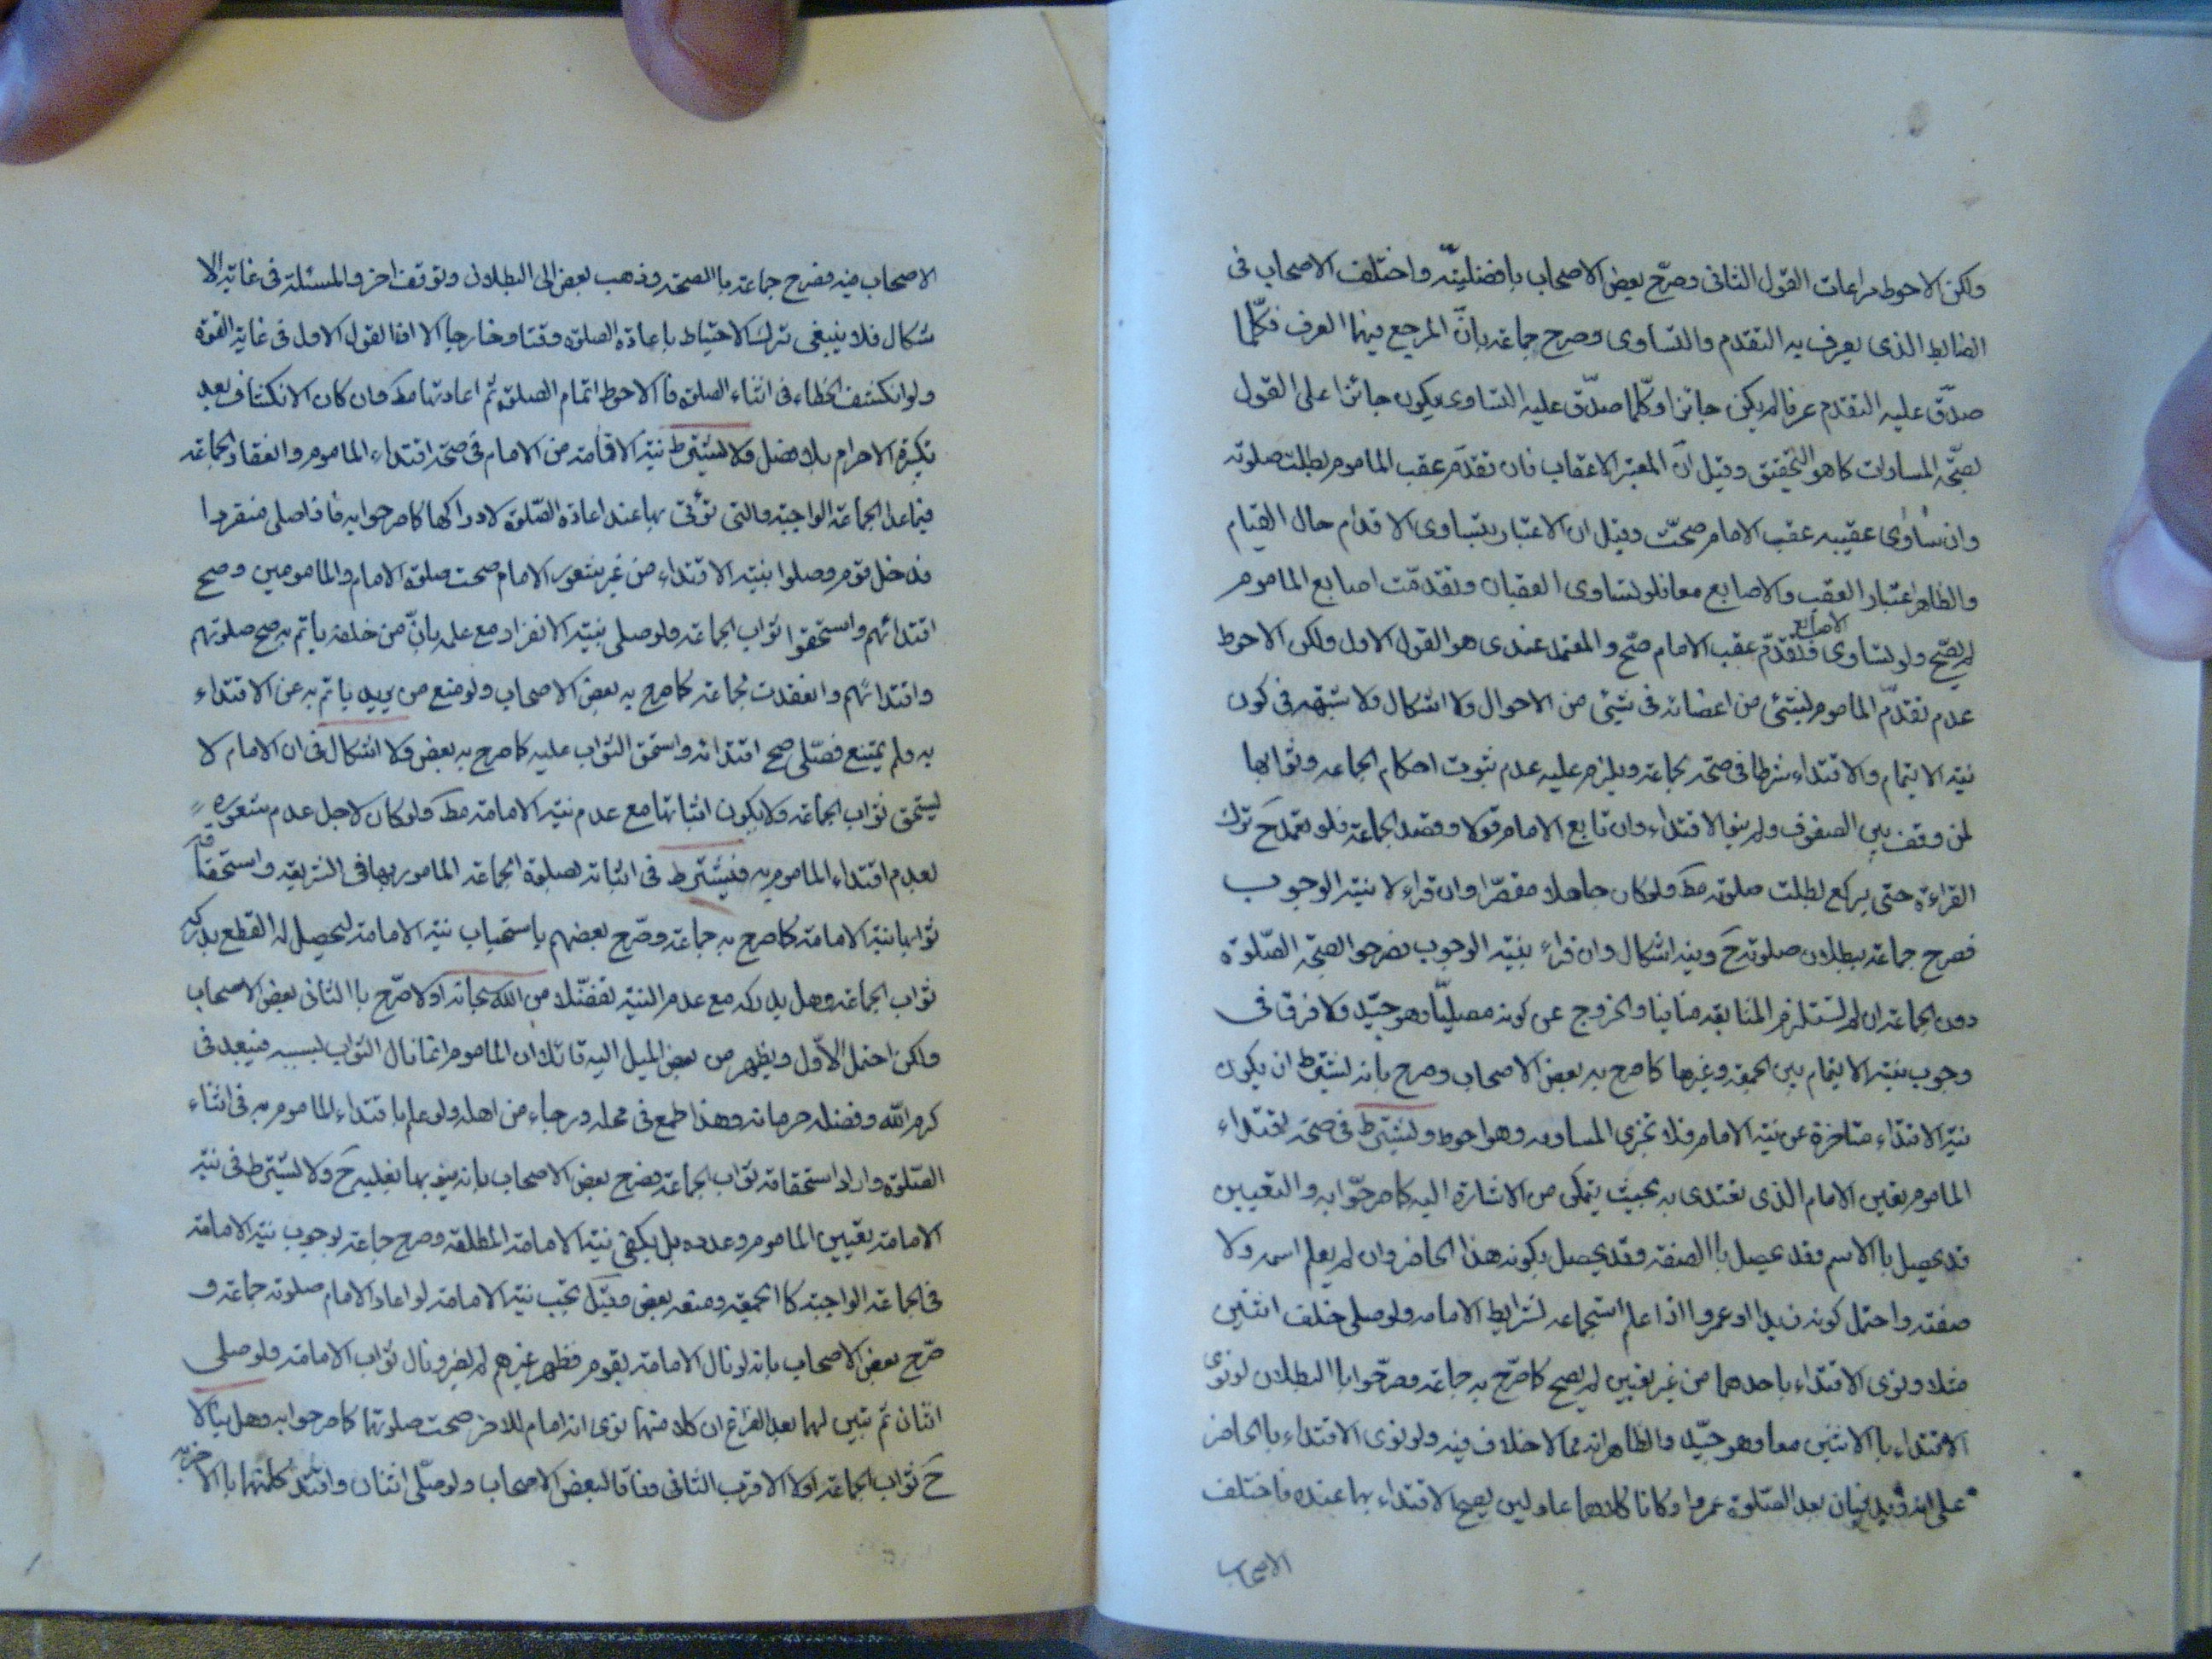 ولكن الاحوط مراعات القول الثانى وصرّح بعض الاصحاب بافضليته واختلف الاصحاب فى
الضابط الذى يعرف به التقدم والتساوى وصرح جماعة بانّ المرجع فيهما العرف فكلّما
صدّق عليه التقدم عرفا لم يكن جائزا وكلّما صدّق عليه التساوى يكون جائزا على القول
بصحّة المساوات كما هو التحقيق وقيل انّ المعتبر الاعقاب فان تقدّم عقب الماموم بطلت صلوته
وان تساوى عقبيه عقب الامام صحّت وقيل ان الاعتبار بتساوى الاقدام حال القيام
والظاهر اعتبار العقب والاصابع معا فلو تساوى العقبان وتقدّمت اصابع الماموم
لم يصّح ولو تساوى الاصابع فتقدّم عقب الامام صحّ والمعتمد عندى هو القول الاول ولكن الاحوط
عدم تقدّم الماموم بشئ من اعضائه فى شئ من الاحوال ولا اشكال ولا شبهة فى كون
نية الايتمام والاقتداء شرطا فى صحّة الجماعة ويلزم عليه عدم ثبوت احكام الجماعه وثوابها
لمن وقف بين الصفوف ولم ينو الاقتداء وان تابع الامام قولا وقصد الجماعة فلو تعمد ح ترك
القراءة حتى يركع بطلت صلوته مط ولو كان جاهلا مقصّرا وان قراء لا بنية الوجوب
فصرح جماعة ببطلان صلوته ح وفيه اشكال وان قراء بنية الوجوب فصرحوا بصحّة الصّلوة
دون الجماعة ان لم تستلزم المتابعة منافيا والخروج عن كونه مصليّا وهو جيّد ولا فرق فى
وجوب نية الايتمام بين الجمعة وغيرها كما صرح به بعض الاصحاب وصرح بانه يشترط ان يكون
نية الاقتداء متاخرة عن نية الامام فلا تجزى المساوىه وهو احوط ويشترط فى صحة اقتداء
الماموم تعيين الامام الذى يقتدى به بحيث يتمكن من الاشارة اليه كما صرحّوا به والتعيين
قد يحصل باالاسم وقد يحصل باالصفة وقد يحصل بكونه هذا الحاضر وان لم يعلم اسمه ولا
صفته واحتمل كونه زيدا او عمروا اذا علم استجماعه لشرايط الامامه ولو صلى خلف اثنين
مثلا ونوى الاقتداء باحدهما من غير تعيين لم يصح كما صرّح به جماعة وصرحّوا باالبطلان لو نوى
الاقتداء باالاثنين معا وهو جيّد والظاهر انه مما لا خلاف فيه ولو نوى الاقتداء باالحاضر
على انه زيد فبان بعد الصّلوة عمروا وكانا كلاهما عادلين يصح الاقتداء بهما عنده فاختلف
الاصحاب
الاصحاب فيه فصرح جماعة باالصحّة وذهب بعض الى البطلان وتوقف اخر والمسئلة فى غاية الا
شكال فلا ينبغى ترك الاحتياط باعادة الصلوة وقتا وخارجا الا ان القول الاول فى غاية القوة
ولو انكشف الخطاء فى اثناء الصلوة فاالاحوط اتمام الصلوة ثم اعادتها مط وان كان الانكشاف بعد
تكبيرة الاحرام بلا فصل ولا يشترط نية الاقامة من الامام فى صحّة اقتداء الماموم وانعقاد الجماعة
فيما عدا الجماعة الواجبة والتى تؤتى بها عند اعادة الصّلوة لادراكها كما صرحوا به فاذا صلى منفردا
فدخل قوم وصلوا بنية الاقتداء من غير شعور الامام صحت صلوة الامام والمامومين وصح
اقتدائهم واستحقوا ثواب الجماعة ولو صلى بنية الانفراد مع علمه بانّ من خلفه ياتم به صح صلوتهم
واقتدائهم وانعقدت الجماعة كما صرح به بعض الاصحاب ولو منع من يريد ياتم به عن الاقتداء
به ولم يمتنع فصلّى صح اقتدائه واستحق الثواب عليه كما صرح به بعض ولا اشكال فى ان الامام لا
يستحق ثواب الجماعة ولا يكون اثباتها مع عدم نية الامامة مط ولو كان لاجل عدم شعوره
بعدم اقتداء الماموم به فيشترط فى اثباته لصلوة الجماعة المامور بها فى الشريعة واستحقاقه
ثوابها نية الامامة كما صرح به جماعة وصرّح بعضهم باستحباب نية الامامة ليحصل له القطع بدركه
ثواب الجماعة وهل يدركه مع عدم النية تفضّلا من الله سبحانه اولا صرّح باالثانى بعض الاصحاب
ولكن احتمل الاوّل ويظهر من بعض الميل اليه قائلا ان الماموم انما نال الثواب بسببه فيبعد فى
كرم الله وفضله حرمانه وهذا طمع فى محله ورجاء من اهله ولو علم باقتداء الماموم به فى اثناء
الصّلوة واراد استحقاقه ثواب الجماعة فصرح بعض الاصحاب بانه ينوبها بقلبه ح ولا يشترط فى نية
الامامة تعيين الماموم وعدده بل يكفى نية الامامة المطلقة وصرح جماعة بوجوب نية الامامة
فى الجماعة الواجبة كاالجمعة ومنعه بعض وقيل يجب نية الامامة لو اعاد الامام صلوته جماعة و
صرّح بعض الاصحاب بانه لو نال الامامة بقوم فظهر غيرهم لم يضر ونال ثواب الامامة ولو صلى
اثنان ثم تبين لهما بعد الفراغ ان كلا منهما نوى انه امام للاخر صحت صلوتهما كما صرحوا به وهل ينالا
ح ثواب الجماعة اولا الاقرب الثانى وفاقا لبعض الاصحاب ولو صلّى اثنان واقتد كل منهما باالاخر